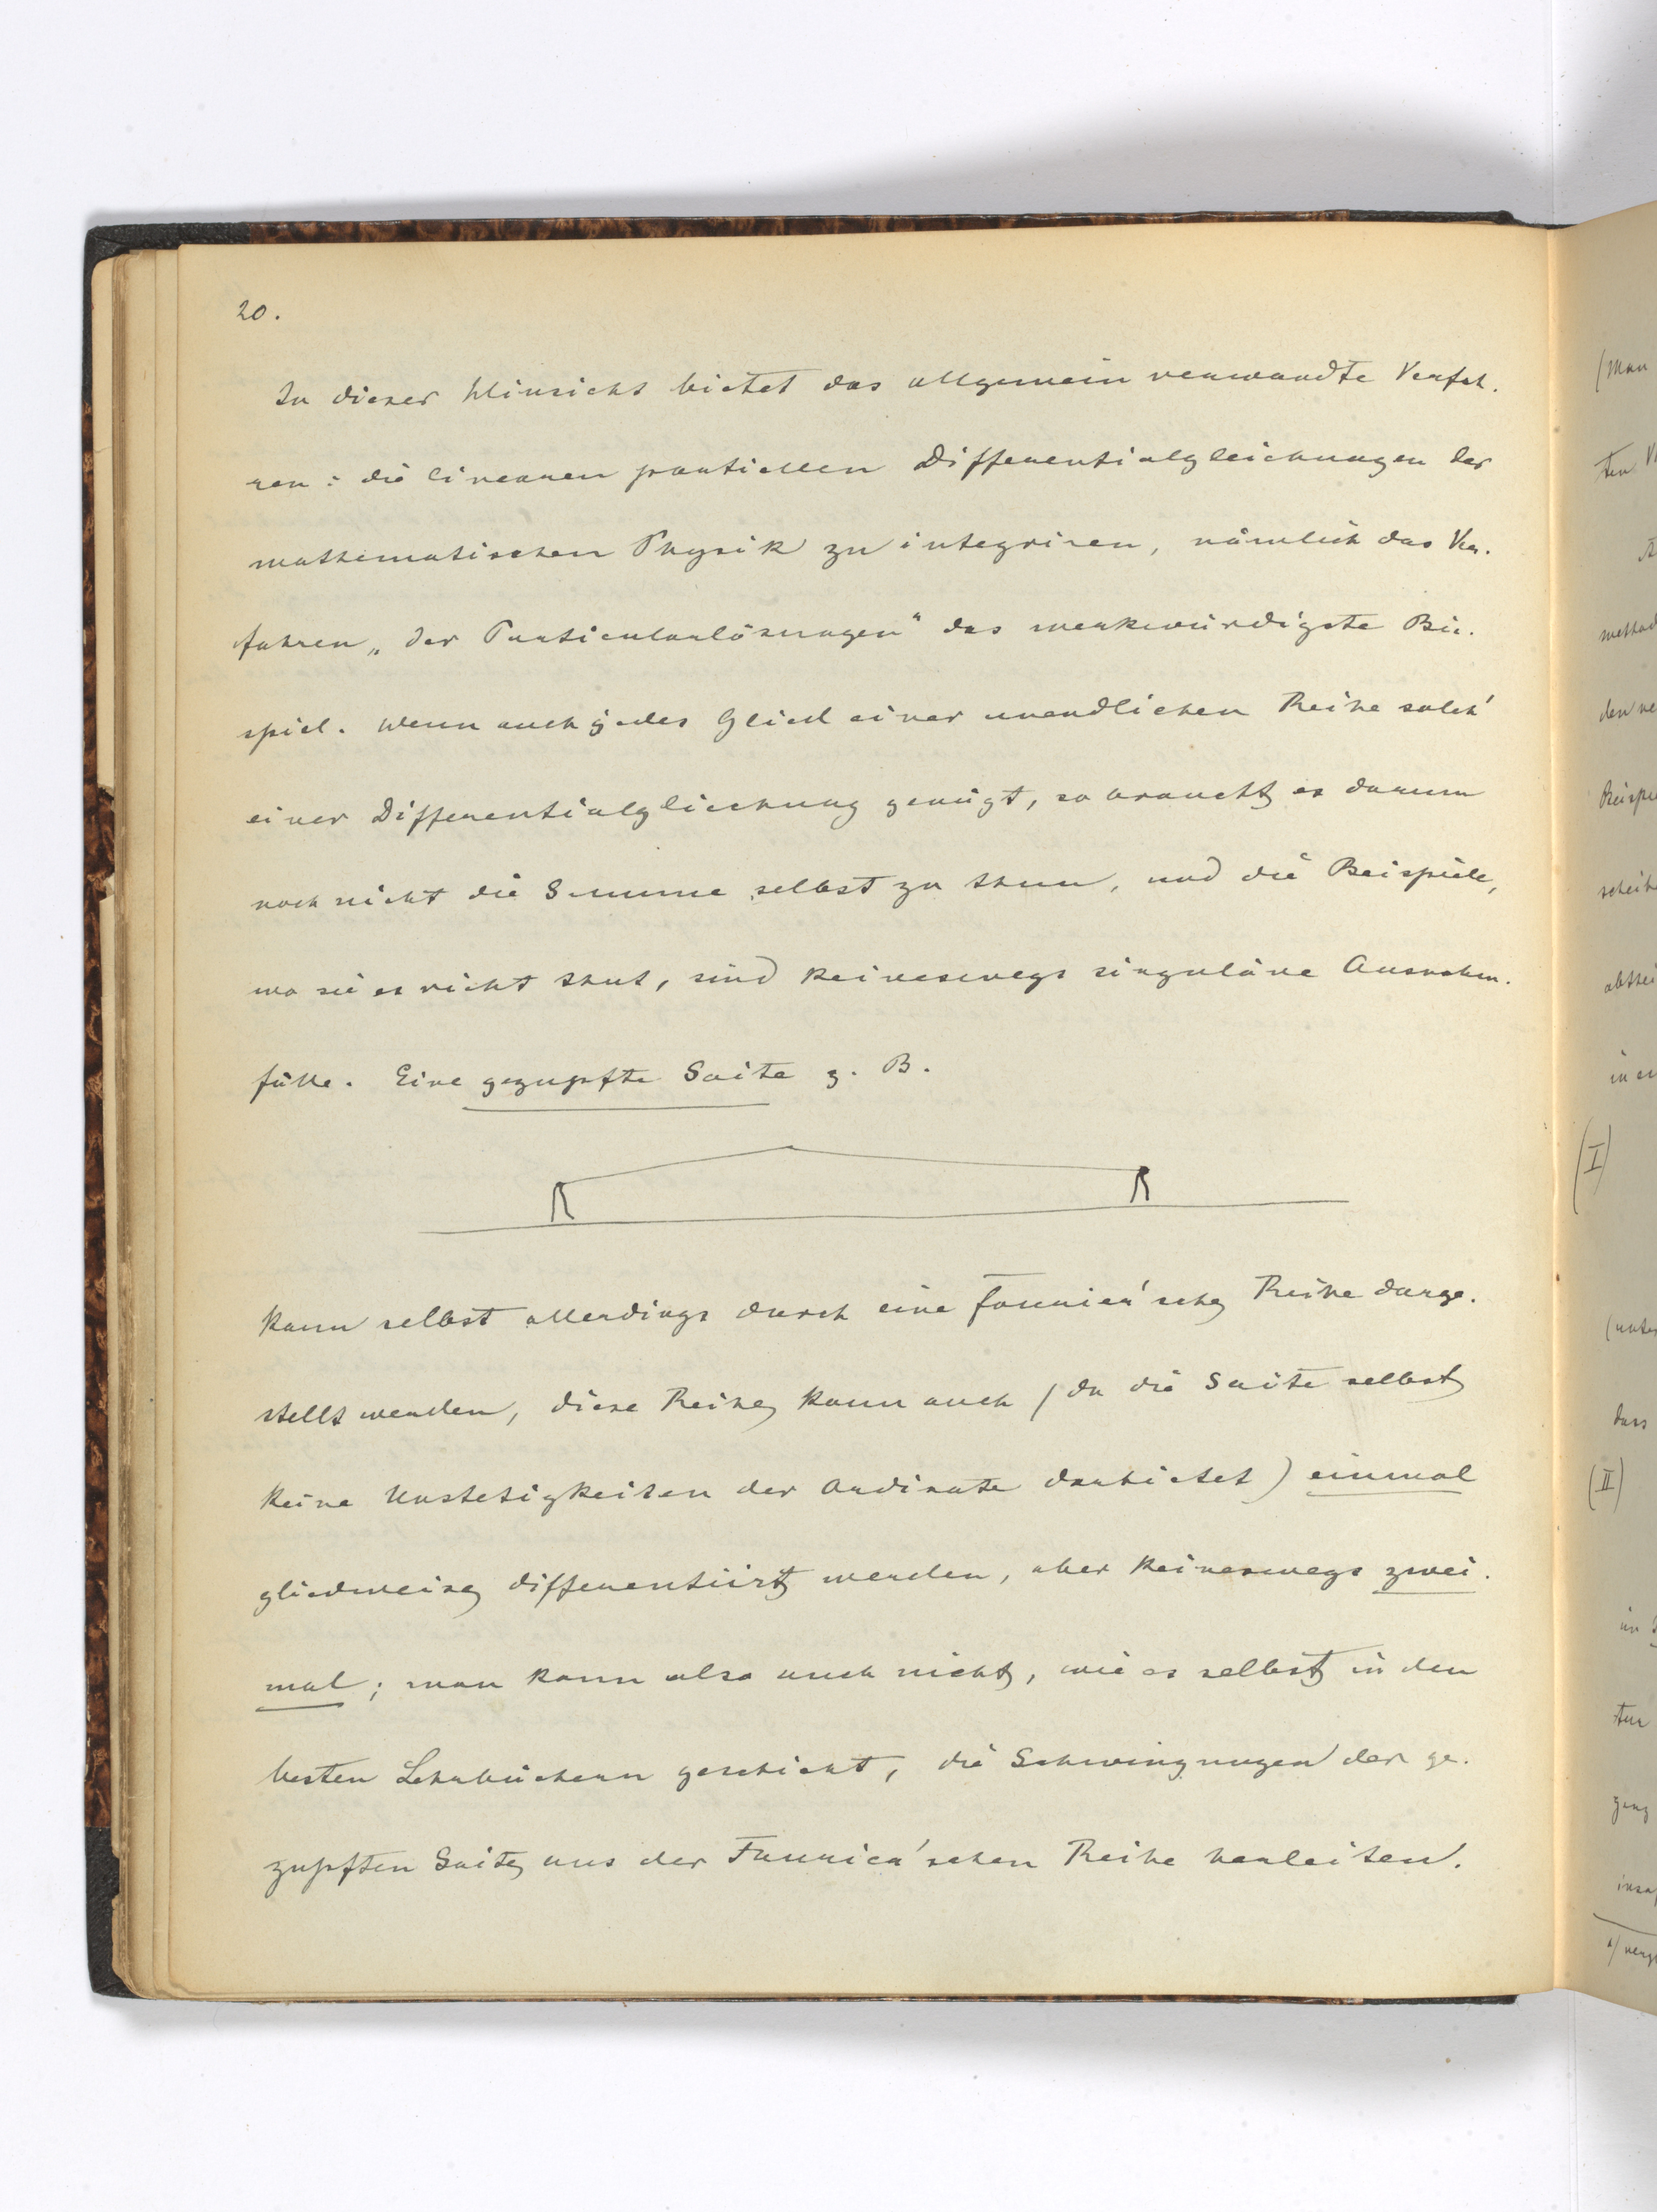 20.
In dieser Hinsicht bietet das allgemein verwandte Verfah-
ren: die linearen partiellen Differentialgleichungen der
mathematischen Physik zu integriren, nämlich das Ver-
fahren „der Particularlösungen“ das merkwürdigste Bei-
spiel. Wenn auch jedes Glied einer unendlichen Reihe solch'
einer Differentialgliechung genügt, so braucht es darum
noch nicht die Summe selbst zu thun, und die Beispiele,
wo sie es nicht thut, sind keineswegs singuläre Ausnahm-
fälle. Eine gezupfte Saite z. B.
kann selbst allerdings durch eine Fourier'sche Reihe darge-
stellt werden, diese Reihe kann auch (da die Saite selbst
keine Unstetigkeiten der Ordinate darbietet) einmal
gliedweise differentiirt werden, aber keineswegs zwei-
mal; man kann also auch nicht, wie es selbst in den
besten Lehrbüchern geschieht, die Schwingungen der ge-
zupften Saite aus der Fourier'schen Reihe herleiten.
(Man
ten
method
den
scheib
(I)
dass
(II)